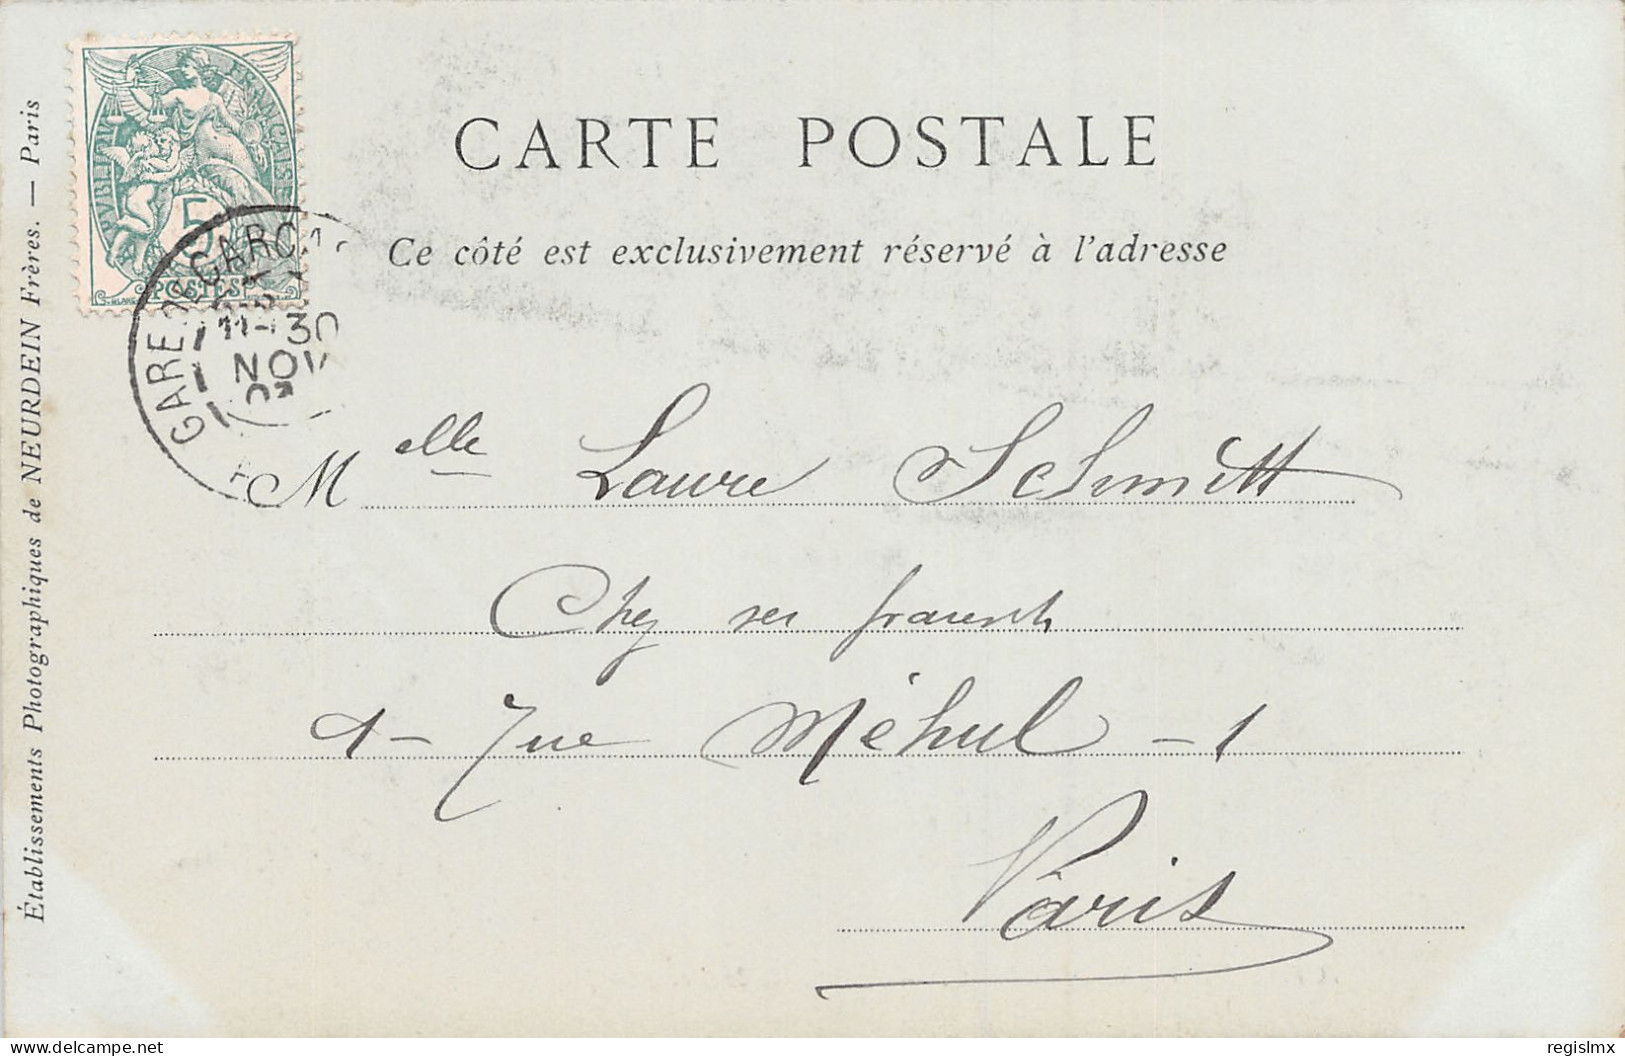 RÉPUBLIQUE FRANÇAISE
5
POSTES
GARE DE GARC
11-30
NOV
03
CARTE POSTALE
Ce côté est exclusivement réservé à l'adresse
Melle Laure Schmitt
Chez ses parents
1 - rue Méhul - 1
Paris
Établissements Photographiques de NEURDEIN Frères. — Paris
delcampe.net
regislmx